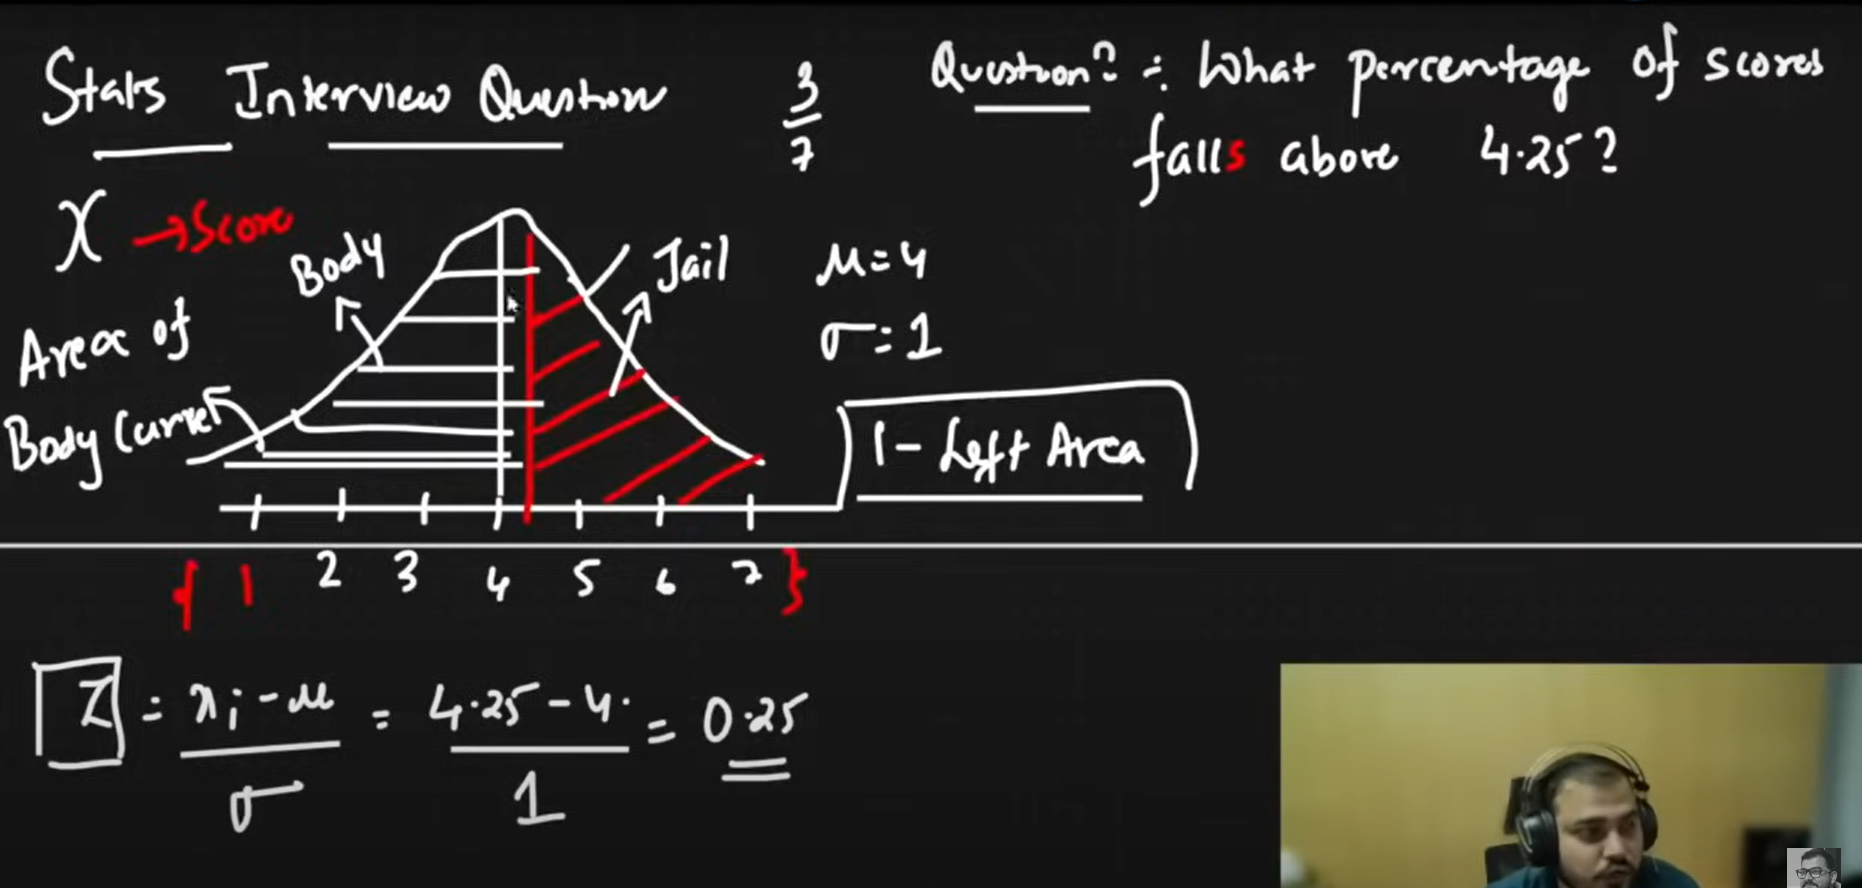 Stats Interview Question
3
7
Question? ÷ What percentage of scores
falls above 4.25?
X → Score
Body
Tail
Area of
Body Curve
μ = 4
σ = 1
1 - Left Area
{ 1 2 3 4 5 6 7 }
Z = xi - μ = 4.25 - 4. = 0.25
σ 1